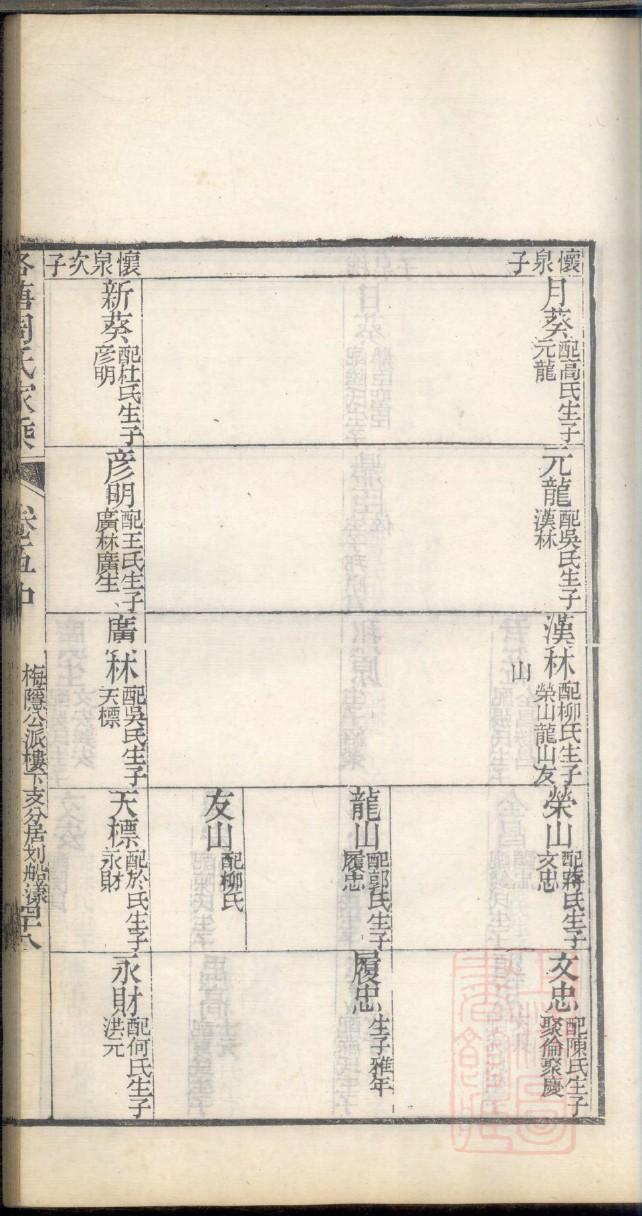 懷泉子
月葵 配高氏生子元龍
元龍 配吳氏生子漢林
漢林 配柳氏生子榮山龍山友山
榮山 配蔣氏生子文忠
文忠 配陳氏生子聚倫聚慶
龍山 配郭氏生子履忠
履忠 生子雅年
友山 配柳氏
懷泉次子
新葵 配杜氏生子彦明
彦明 配王氏生子廣林廣生
廣林 配吳氏生子天標
天標 配於氏生子永財
永財 配何氏生子洪元
周氏家乘
卷五中
梅隱公派樓下支分居划船漾